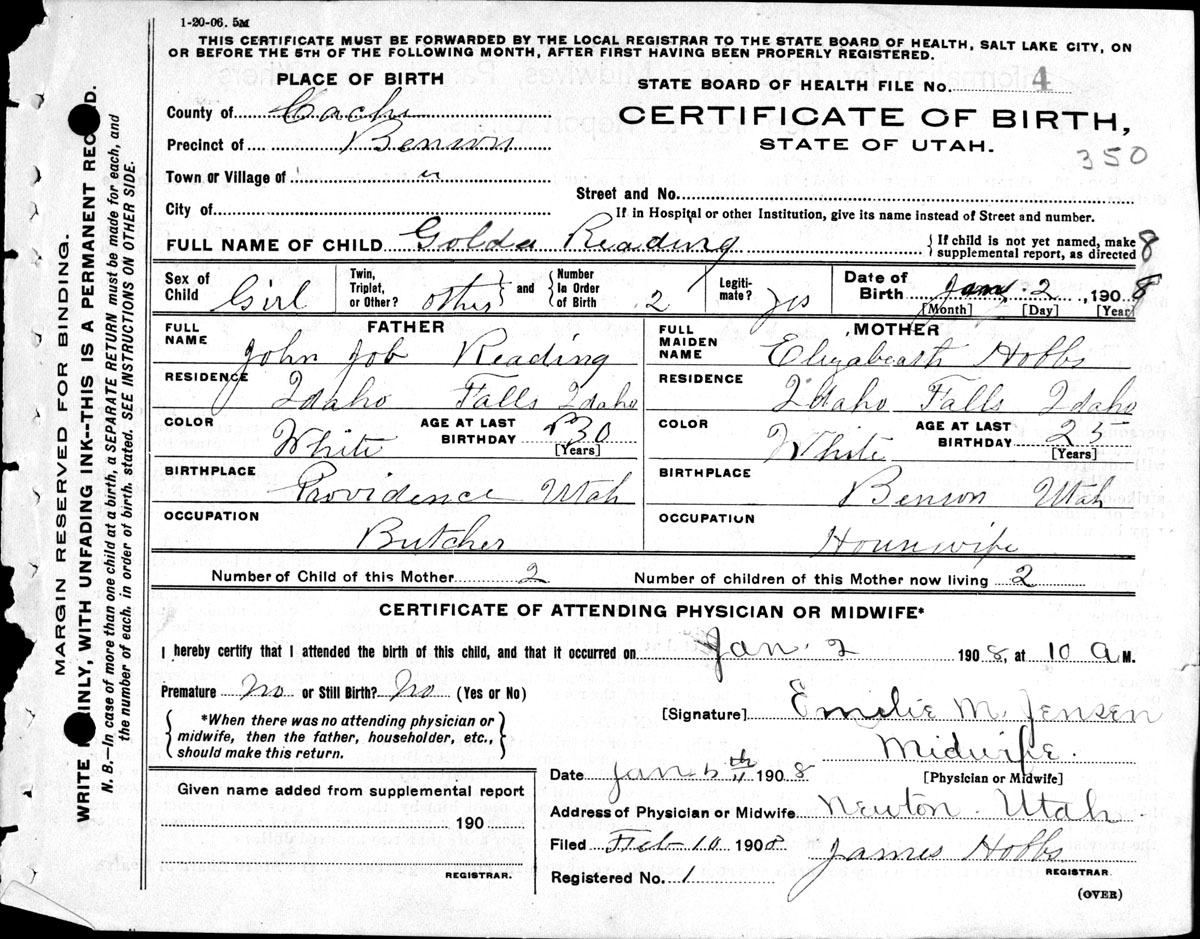 1-20-06. 5M
THIS CERTIFICATE MUST BE FORWARDED BY THE LOCAL REGISTRAR TO THE STATE BOARD OF HEALTH, SALT LAKE CITY, ON
OR BEFORE THE 5TH OF THE FOLLOWING MONTH, AFTER FIRST HAVING BEEN PROPERLY REGISTERED.
PLACE OF BIRTH
STATE BOARD OF HEALTH FILE No. 4
County of Cache
CERTIFICATE OF BIRTH,
Precinct of Benson
STATE OF UTAH.
350
Town or Village of "
Street and No.
City of
If in Hospital or other Institution, give its name instead of Street and number.
FULL NAME OF CHILD Golda Reading { If child is not yet named, make supplemental report, as directed
8
Sex of Child Girl Twin, Triplet, or Other? other } and { Number In Order of Birth 2 Legiti-mate? yes Date of Birth Jan. 2, 1908
[Month] [Day] [Year]
8
FATHER
MOTHER
FULL NAME John Job Reading
FULL MAIDEN NAME Elizabeath Hobbs
RESIDENCE Idaho Falls Idaho
RESIDENCE Idaho Falls Idaho
COLOR White AGE AT LAST BIRTHDAY 30 [Years]
COLOR White AGE AT LAST BIRTHDAY 25 [Years]
BIRTHPLACE Providence Utah
BIRTHPLACE Benson Utah
OCCUPATION Butcher
OCCUPATION Hounwife
Number of Child of this Mother 2 Number of children of this Mother now living 2
CERTIFICATE OF ATTENDING PHYSICIAN OR MIDWIFE*
I hereby certify that I attended the birth of this child, and that it occurred on Jan. 2 1908, at 10 a M.
Premature No or Still Birth? No (Yes or No)
[Signature] Emelie M. Jensen
*When there was no attending physician or
midwife, then the father, householder, etc.,
should make this return.
Midwife.
[Physician or Midwife]
Date Jan 5th 1908
Given name added from supplemental report
Address of Physician or Midwife Newton. Utah
190
Filed Feb 10 1908 James Hobbs
REGISTRAR.
REGISTRAR.
Registered No. 1
(OVER)
MARGIN RESERVED FOR BINDING.
WRITE INLY, WITH UNFADING INK--THIS IS A PERMANENT REC D.
N. B.—In case of more than one child at a birth, a SEPARATE RETURN must be made for each, and
the number of each, in order of birth, stated. SEE INSTRUCTIONS ON OTHER SIDE.